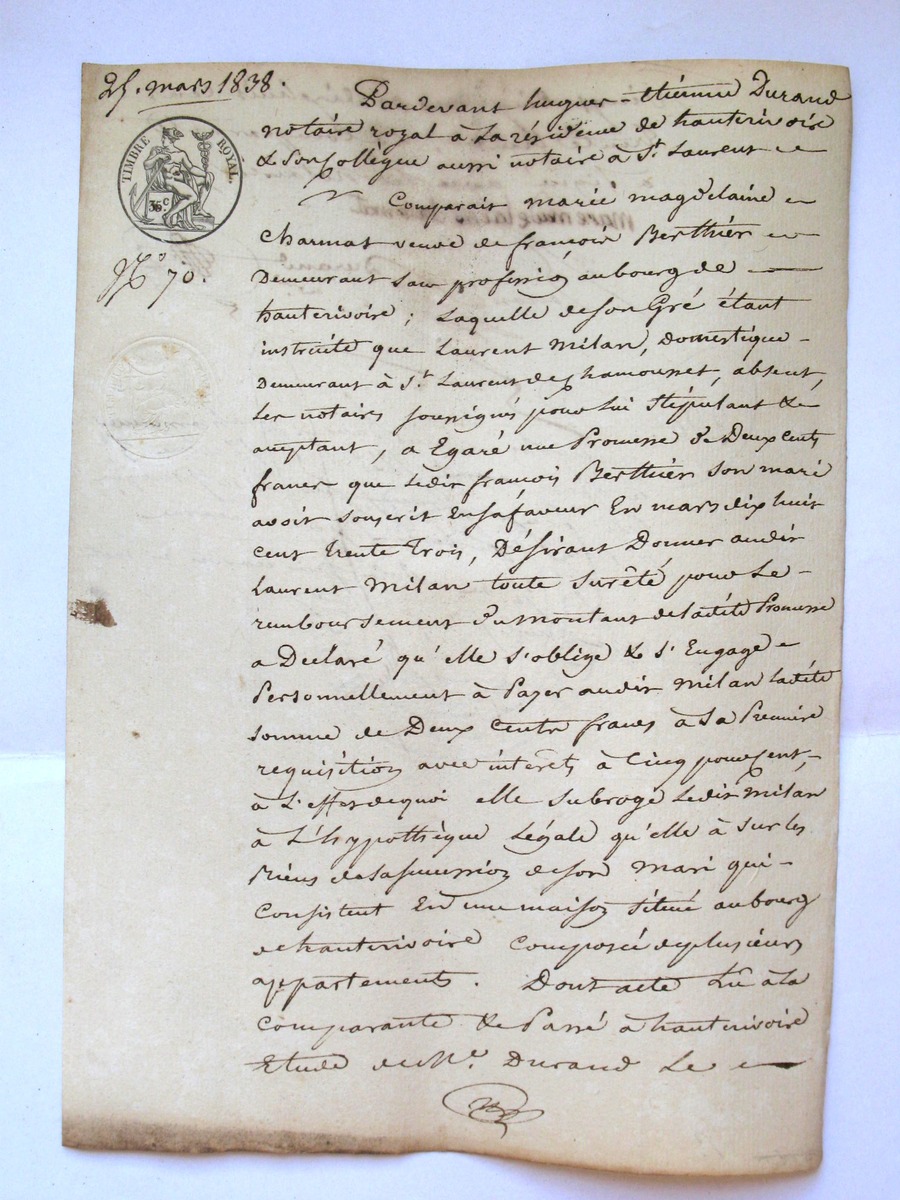 25. mars 1838.
TIMBRE ROYAL.
35 C
N.° 70.
Pardevant hugues-étienne Durand
notaire royal à La résidence de hauterivoire
& Son Collègue aussi notaire à St. Laurent
Comparait marie magdelaine
Charmat veuve de françois Berthier
Demeurant Sans profession au bourg de
hauterivoire ; Laquelle de son Gré étant
instruite que Laurent Milan, Domestique
Demeurant à St. Laurent de Chamousset, absent,
Les notaires soussignés pour Lui Stipulant &
acceptant, a Egaré une Promesse de Deux Cents
francs que Ledit françois Berthier Son mari
avoit Souscrit En sa faveur En mars dix huit
cent trente trois, Désirant Donner audit
Laurent Milan toute Surêté pour Le
remboursement du montant de ladite Promesse
a Déclaré qu'elle s'oblige & s'Engage
Personnellement à Payer audit Milan ladite
Somme de Deux Cents francs à Sa Première
requisition avec intérêts à Cinq pour Cent,
à L'effet de quoi elle Subroge Ledit Milan
à L'hypothèque Légale qu'elle à Sur les
Biens de la succession de Son mari qui
Consistent En une maison Située au bourg
de hauterivoire Composée de plusieurs
appartements. Dont acte Lû à La
Comparante & Passé à hauterivoire
Etude de Me. Durand Le